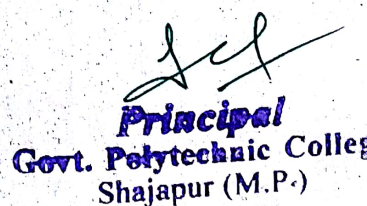 Principal
Govt. Polytechnic Colleg
Shajapur (M.P.)